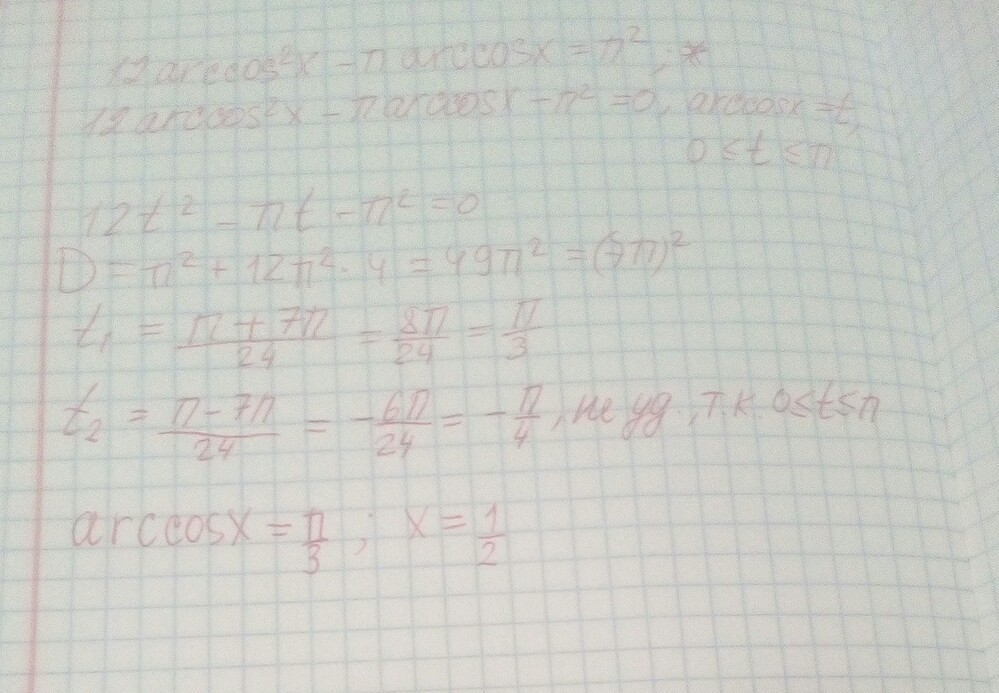 12arccos²x - π arccosx = π², *
12arccos²x - π arccosx - π² = 0, arccosx = t,
0 ≤ t ≤ π
12t² - πt - π² = 0
D = π² + 12π² · 4 = 49π² = (7π)²
t₁ = (π + 7π)/24 = 8π/24 = π/3
t₂ = (π - 7π)/24 = -6π/24 = -π/4, не уд, т.к. 0≤t≤π
arccosx = π/3 ; x = 1/2